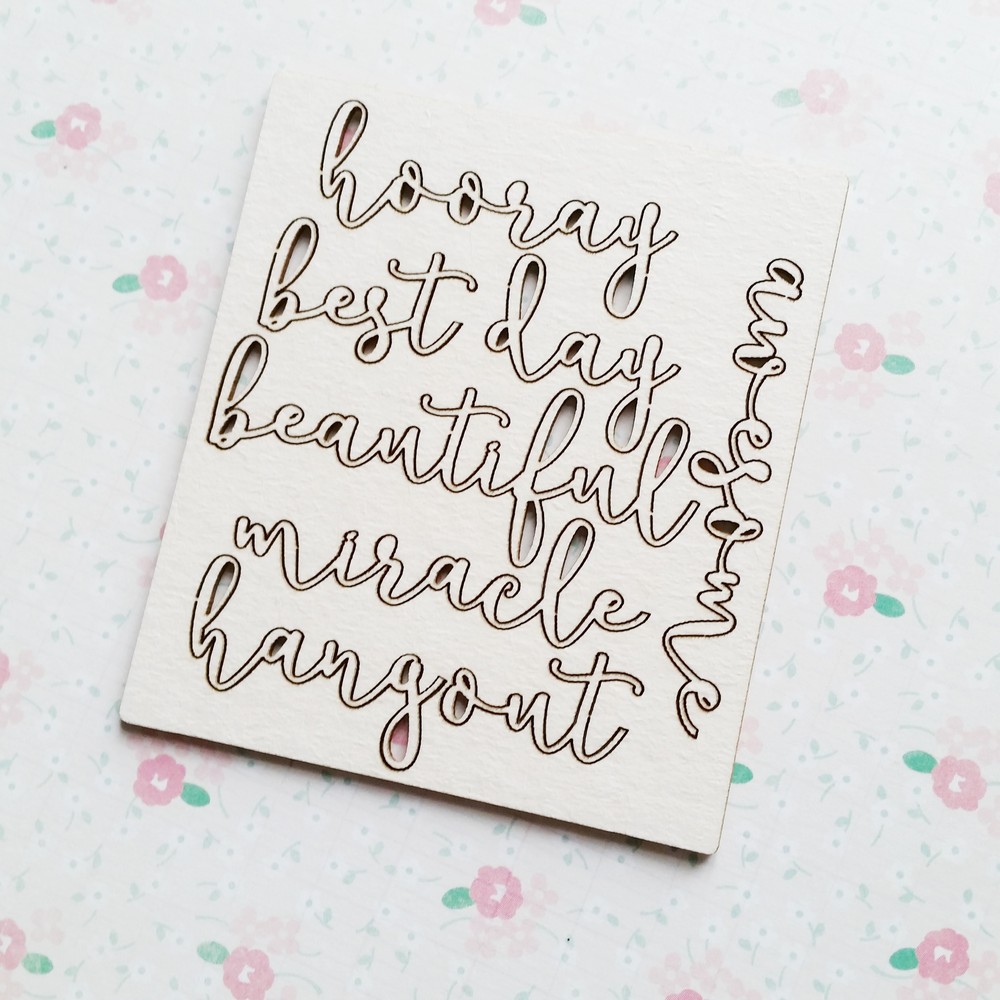 hooray
best day
beautiful
miracle
hangout
awesome